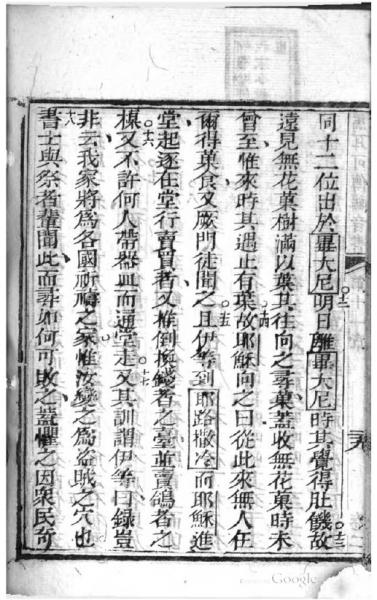 同十二位出於畢大尼十二明日離畢大尼時其覺得肚饑十三故
遠見無花菓樹滿以葉其徃向之尋菓蓋收無花菓時未
曾至惟來時其遇止有葉十四故耶穌向之曰從此來無人在
爾得菓食又厥門徒聞之十五且伊等到耶路撒冷而耶穌進
堂起逐在堂行賣買者又推倒換錢者之臺並賣鴿者之
櫈十六又不許何人帶器皿而通堂走十七又其訓謂伊等曰錄豈
非云我家將爲各國祈禱之家惟汝變之爲盜賊之穴也
十八書士與祭者輩聞此而尋如何可敗之蓋懼之因衆民奇
Google